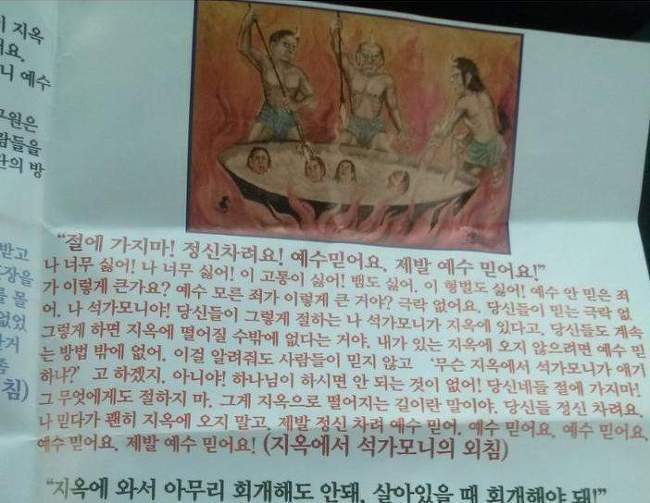 지옥
예수
구원은
람들을
의 방
받고
장을
를 물
없었
침)
"절에 가지마! 정신차려요! 예수믿어요, 제발 예수 믿어요!"
나 너무 싫어! 나 너무 싫어! 이 고통이 싫어! 뱀도 싫어, 이 형벌도 싫어! 예수 안 믿은 죄
가 이렇게 큰가요? 예수 모른 죄가 이렇게 큰 거야? 극락 없어요, 당신들이 믿는 극락 없
어, 나 석가모니야! 당신들이 그렇게 절하는 나 석가모니가 지옥에 있다고, 당신들도 계속
그렇게 하면 지옥에 떨어질 수밖에 없다는 거야. 내가 있는 지옥에 오지 않으려면 예수 믿
는 방법 밖에 없어, 이걸 알려줘도 사람들이 믿지 않고 '무슨 지옥에서 석가모니가 얘기
하냐?' 고 하겠지. 아니야! 하나님이 하시면 안 되는 것이 없어! 당신네들 절에 가지마!
그 무엇에게도 절하지 마. 그게 지옥으로 떨어지는 길이란 말이야. 당신들 정신 차려요.
나 믿다가 괜히 지옥에 오지 말고, 제발 정신 차려 예수 믿어, 예수 믿어요, 예수 믿어요,
예수 믿어요, 제발 예수 믿어요! (지옥에서 석가모니의 외침)
"지옥에 와서 아무리 회개해도 안돼, 살아있을 때 회개해야 돼!"